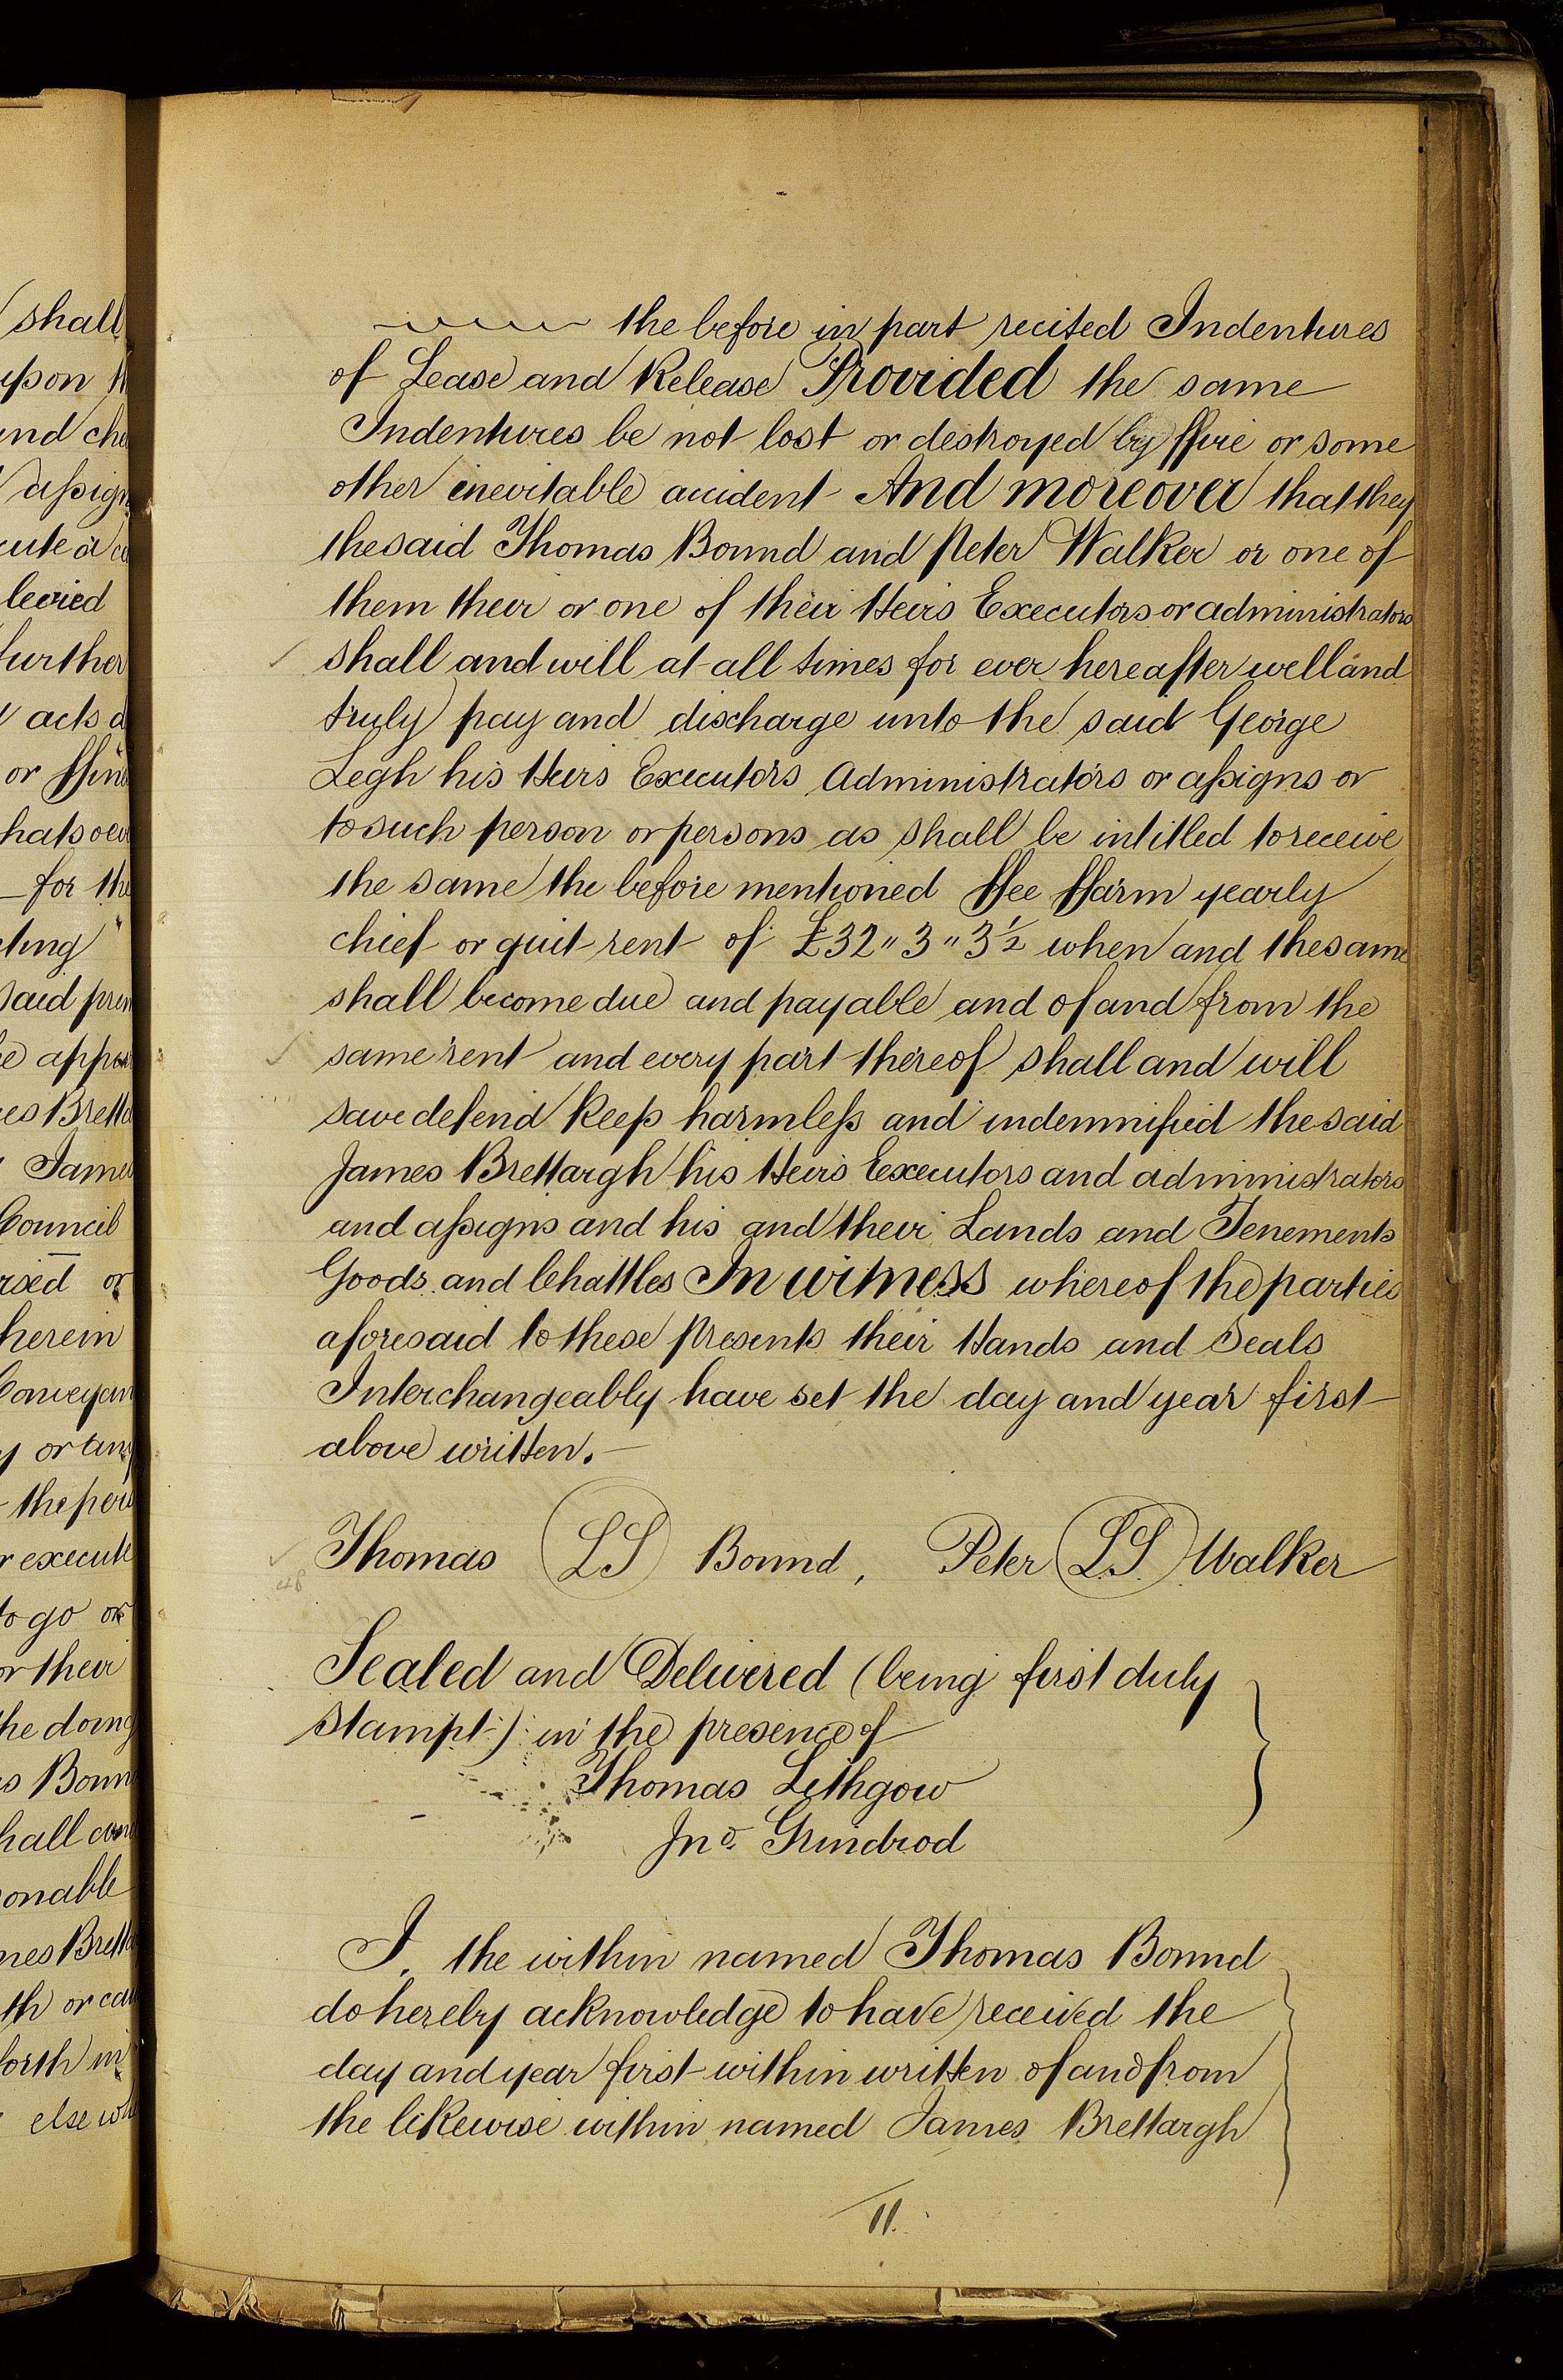 shall
upon th
and cha
assign
cute a co
levied
further
acts d
or ffine
hatsoev
for the
ting
said prem
he appar
es Bretta
Jame
Council
rsed or
herein
Conveyan
y or any
the peru
r execute
to go or
or their
he doing
s Boun
hall com
sonable
mes Bretta
th or cau
forth in
else wh
the before in part recited Indentures
of Lease and Release Provided the same
Indentures be not lost or destroyed by ffire or some
other inevitable accident And moreover that they
the said Thomas Bound and Peter Walker or one of
them their or one of their Heirs Executors or administrators
shall and will at all times for ever hereafter well and
truly pay and discharge unto the said George
Legh his Heirs Executors Administrators or assigns or
to such person or persons as shall be intitled to receive
the same the before mentioned ffee ffarm yearly
chief or quit rent of £32 " 3 " 3½ when and the same
shall become due and payable and of and from the
same rent and every part thereof shall and will
save defend keep harmless and indemnified the said
James Brettargh his Heirs Executors and administrators
and assigns and his and their Lands and Tenements
Goods and Chattles In witness whereof the parties
aforesaid to these presents their Hands and Seals
Interchangeably have set the day and year first
above written.
Thomas LS Bound, Peter L.S. Walker
48
Sealed and Delivered (being first duly
stampt:) in the presence of
Thomas Lithgow
Jno. Grindrod
I, the within named Thomas Bound
do hereby acknowledge to have received the
day and year first within written of and from
the likewise within named James Brettargh
11.